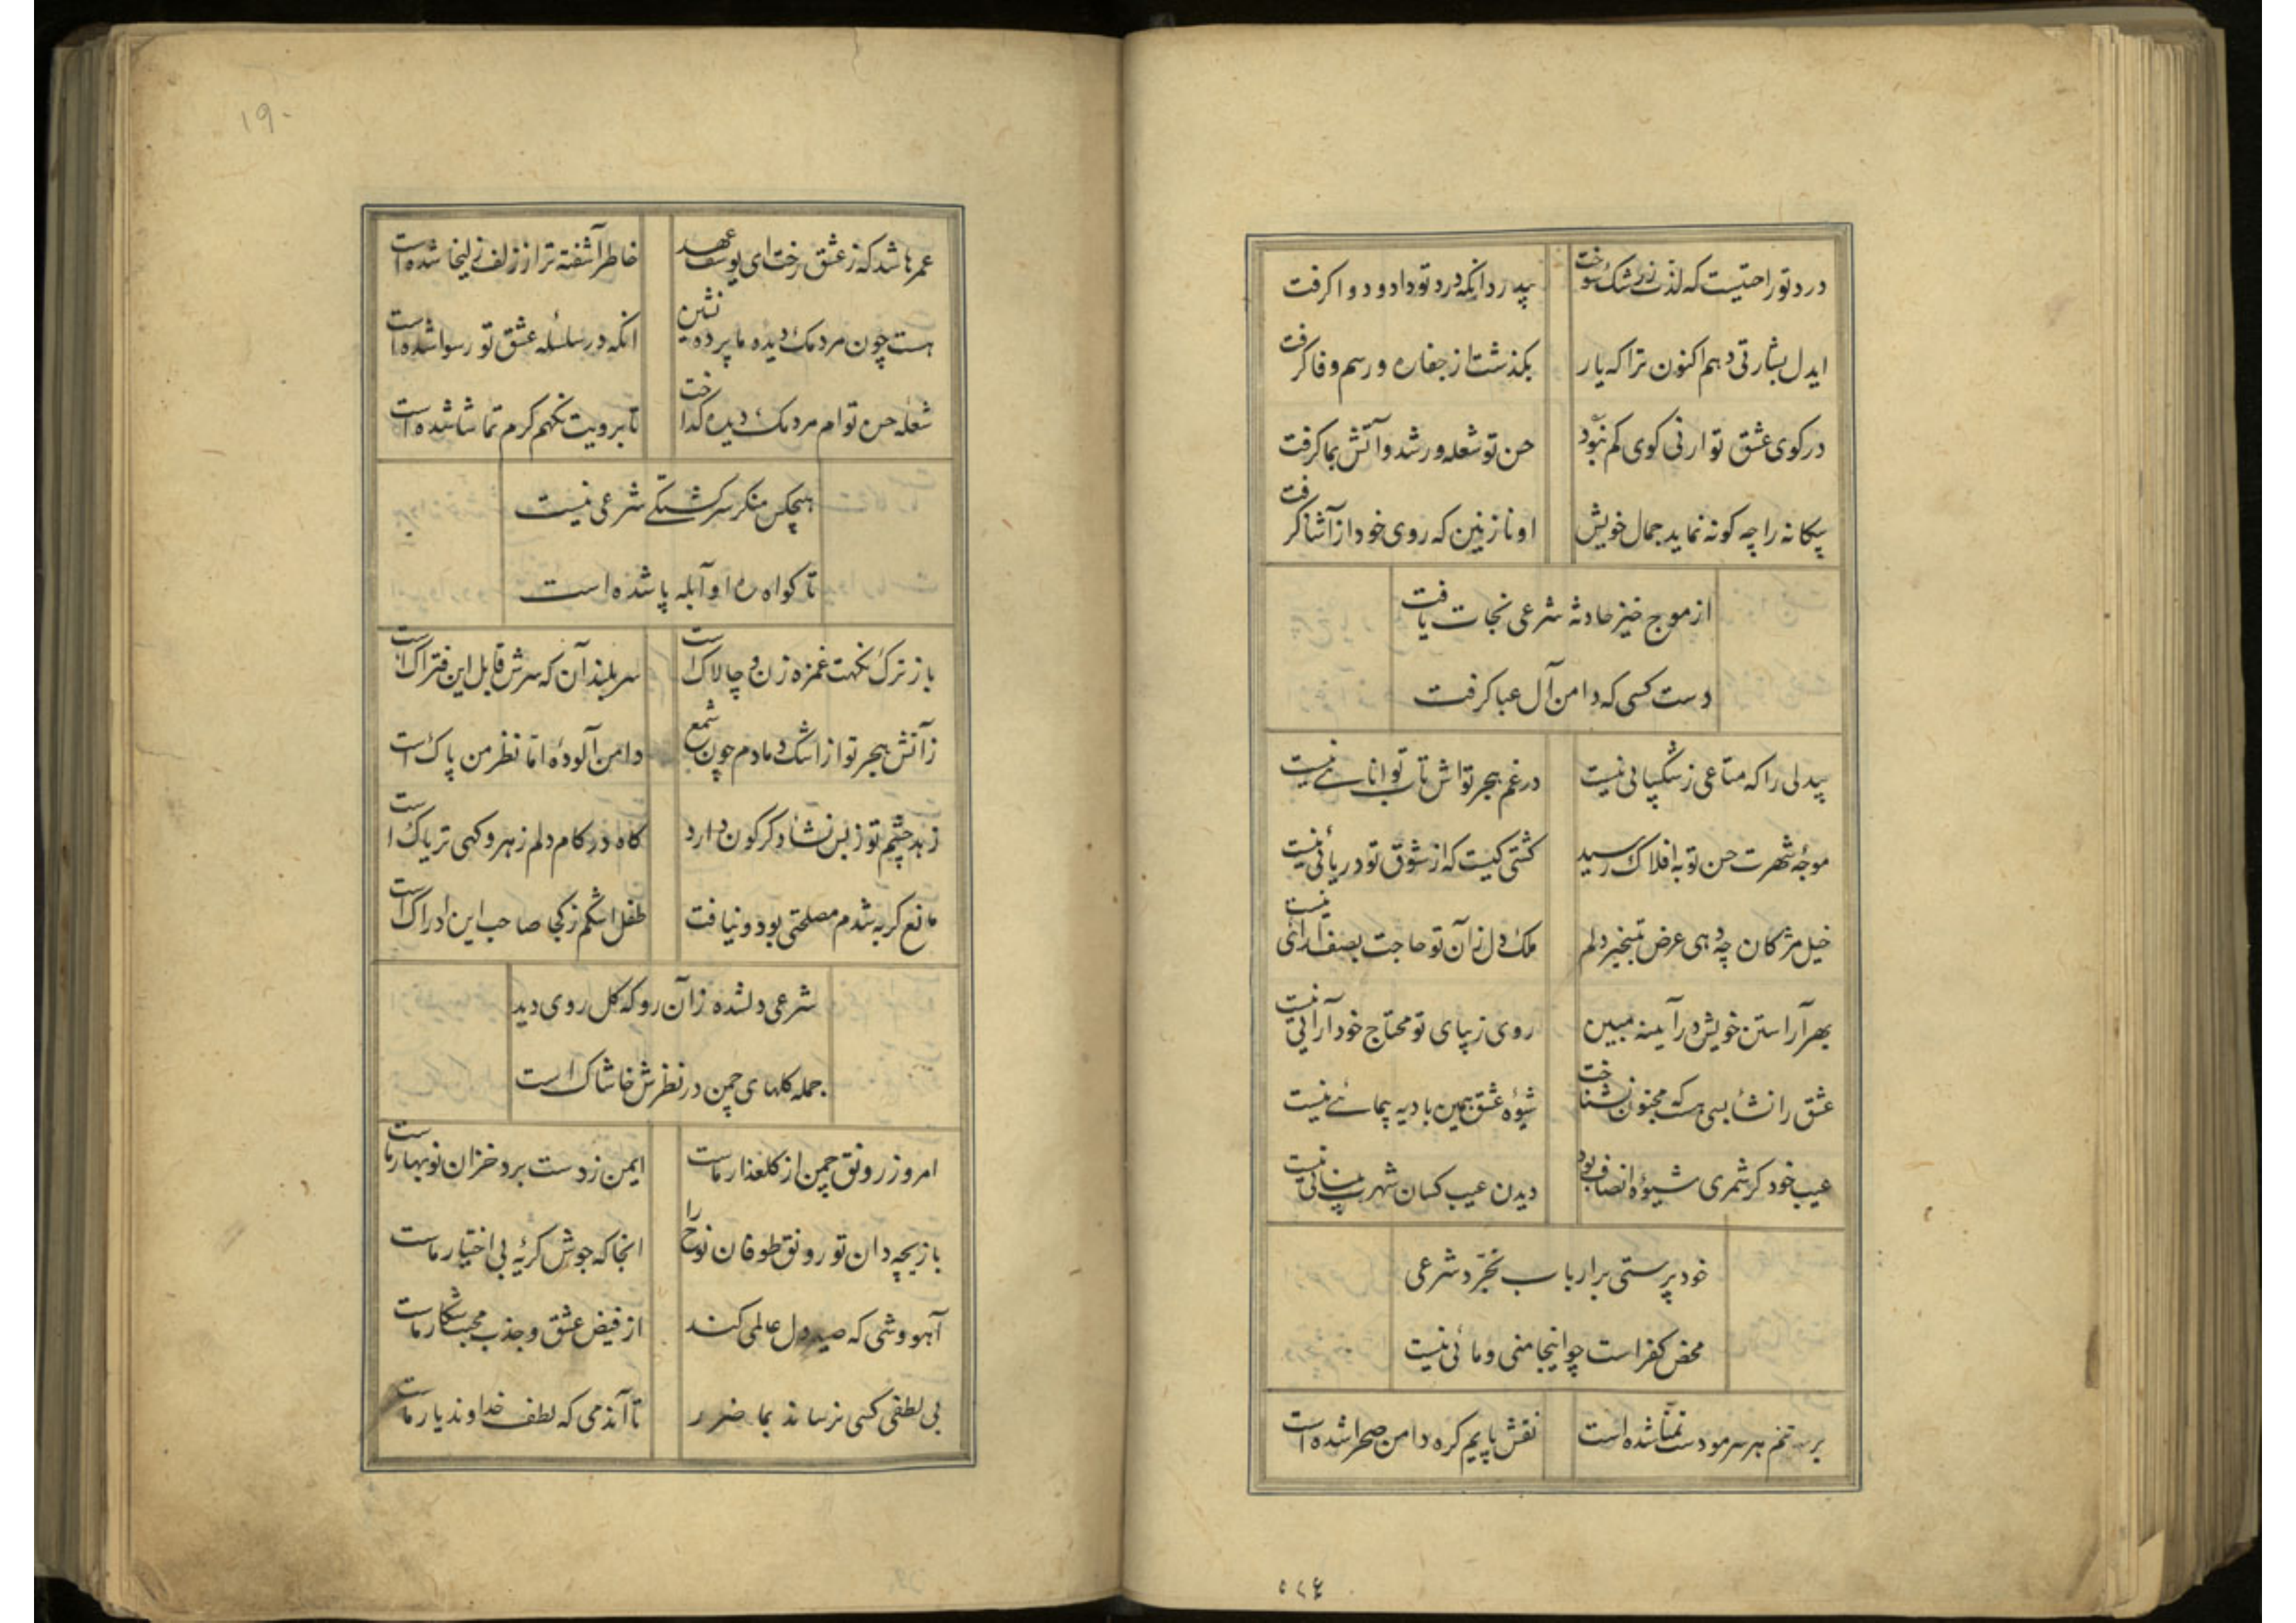 درد تو راحتیست که لذت زرشک سوخت
بیدرد آنکه درد تو داد و دوا کرفت
ایدل بشارتی دهم اکنون ترا که یار
بکذشت از جفا ره و رسم وفا کرفت
در کوی عشق تو ارنی کوی کم نبود
حسن تو شعله ور شد و آتش بما کرفت
بیکانه را چه کونه نماید جمال خویش
او نازنین که روی خود از آشنا کرفت
از موج خیز حادثه شرعی نجات یافت
دست کسی که دامن آل عبا کرفت
بیدلی را که متاعی ز شکیبائی نیست
در غم هجر تواش تاب توانائی نیست
موجۀ شهرت حسن تو به افلاک رسید
کشتی کیست که از شوق تو دریائی نیست
خیل مژکان چه دهی عرض بتسخیر دلم
ملک دل زآن تو حاجت بصف آرائی نیست
بهر آراستن خویش در آیینه مبین
روی زیبای تو محتاج خود آرائی نیست
عشق را نشأ بسی هست که مجنون نشناخت
شیوۀ عشق همین بادیه پیمائی نیست
عیب خود کر شمری شیوۀ انصاف بود
دیدن عیب کسان شهرت بینائی نیست
خود پرستی بر ارباب تجرّد شرعی
محض کفر است چو اینجا منی و مائی نیست
بر تنم هر سر مو دست تمنّا شده است
نقش پایم کره دامن صحرا شده است
۱۹۰
عمرها شد که ز عشق رخت ای یوسف عهد
خاطر آشفته تر از زلف زلیخا شده است
هست چون مردمک دیده ما پرده نشین
انکه در سلسله عشق تو رسوا شده است
شعله حسن توام مردمک دیده کداخت
تا برویت نکهم کرم تماشا شده است
هیچکس منکر سرکشتکی شرعی نیست
تا کواه ره او آبله پا شده است
باز ترک نکهت غمزه زن و چالاک است
سر بلند آن که سرش قابل این فتراک است
زآتش هجر تو از اشک دمادم چون شمع
دامن آلوده امّا نظر من پاک است
زهر چشم تو ز بس نشاء دکرکون دارد
کاه در کام دلم زهر و کهی تریاک است
مانع کریه شدم مصلحتی بود و نیافت
طفل اشکم ز کجا صاحب این ادراک است
شرعی دلشده زآن رو که کل روی دید
جمله کلهای چمن در نظرش خاشاک است
امروز رونق چمن از کلعذار ماست
ایمن ز دست برد خزان نوبهار ماست
بازیچه دان تو رونق طوفان نوح را
انجا که جوش کریۀ بی اختیار ماست
آهو وشی که صید دل عالمی کند
از فیض عشق و جذب محبت شکار ماست
بی لطفی کسی نرساند بما ضرر
تا آندمی که لطف خداوند یار ماست